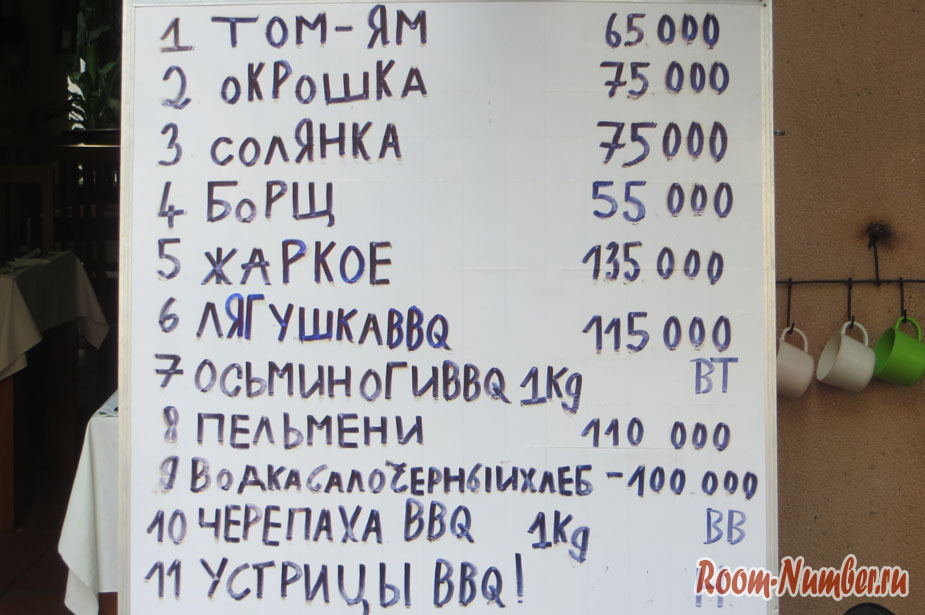 1 ТОМ-ЯМ 65000
2 ОКРОШКА 75000
3 СОЛЯНКА 75000
4 БОРЩ 55 000
5 ЖАРКОЕ 135 000
6 ЛЯГУШКАBBQ 115000
7 ОСЬМИНОГИBBQ 1Kg ВТ
8 ПЕЛЬМЕНИ 110 000
9 ВОДКАСАЛОЧЕРНЫЙХЛЕБ -100 000
10 ЧЕРЕПАХА BBQ 1Kg ВВ
11 УСТРИЦЫ BBQ!
Room-Number.ru